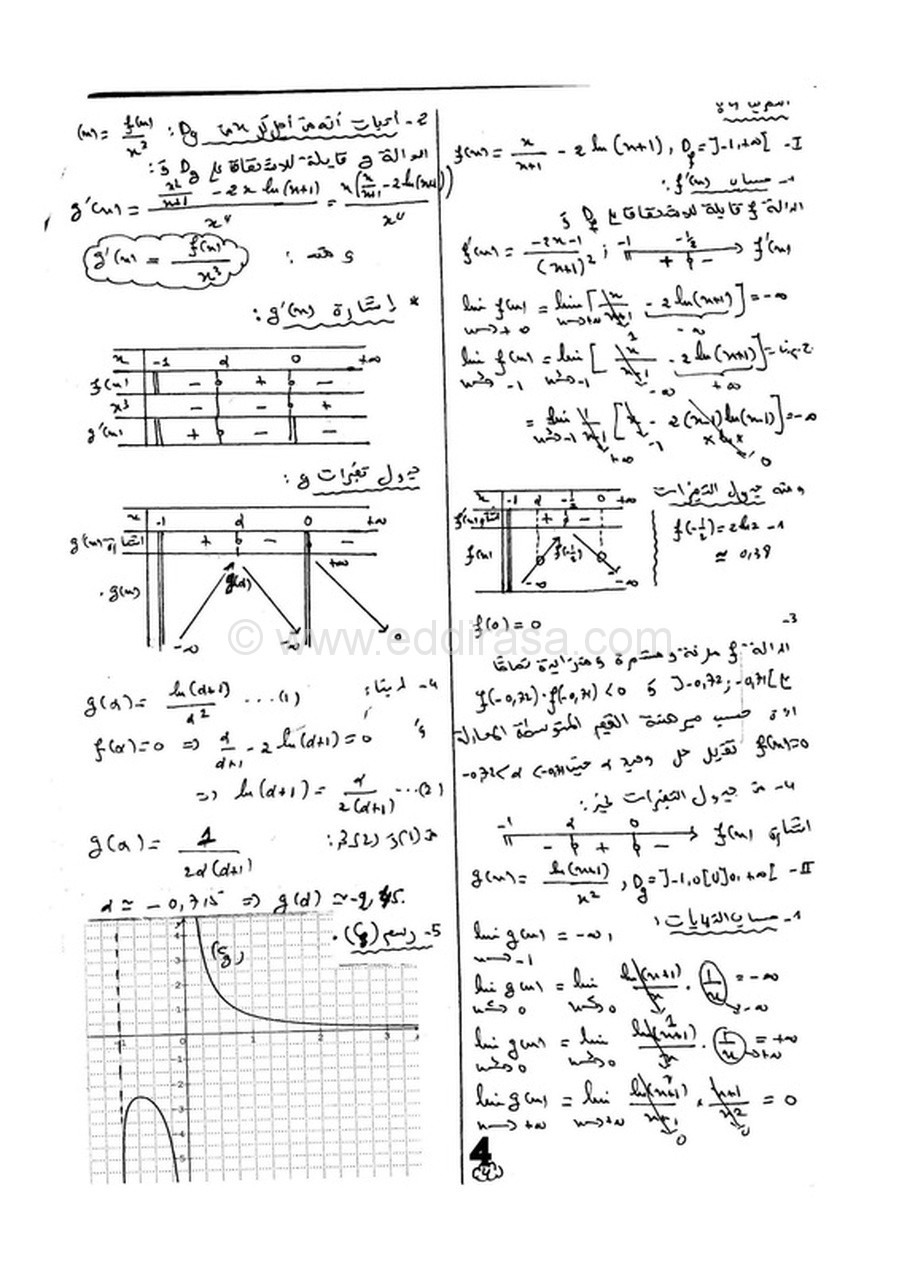 التمرين 04
I- f(x) = x/(x+1) - 2 ln(x+1) , D_f = ]-1,+∞[
1- حساب f'(x) :
الدالة f قابلة للاشتقاق على D_f و
f'(x) = (-2x-1)/(x+1)² ; -1 -1/2 f'(x)
+ 0 -
lim f(x) = lim [x/(x+1) - 2 ln(x+1)] = -∞
x→+∞ x→+∞ 1 -∞
lim f(x) = lim [x/(x+1) - 2 ln(x+1)] =
x→-1 x→-1 -∞ +∞
= lim 1/(x+1) [x - 2(x+1) ln(x+1)] = -∞
x→-1 +∞ -1 0
ومنه جدول التغيرات
x -1 α -1/2 0 +∞
f'(x) + 0 -
f(x) -∞ f(-1/2) -∞
f(-1/2) = 2ln2 - 1
≈ 0,39
3- f(0) = 0
الدالة f معرفة ومستمرة ومتزايدة تماما
على ]-0,72 ; -0,71[ و f(-0,72)·f(-0,71) < 0
اذن حسب مبرهنة القيم المتوسطة المعادلة
f(x)=0 تقبل حل وحيد α حيث -0,72<α<-0,71
4- من جدول التغيرات نجد :
-1 α 0
اشارة f(x) - 0 + 0 -
II- g(x) = ln(x+1)/x² , D_g = ]-1,0[∪]0,+∞[
1- حساب النهايات :
lim g(x) = -∞ ,
x→-1
lim g(x) = lim ln(x+1)/x · (1/x) = -∞
x→0 x→0 1 -∞
lim g(x) = lim ln(x+1)/x · (1/x) = +∞
x→0 x→0 1 +∞
lim g(x) = lim ln(x+1)/(x+1) × (x+1)/x² = 0
x→+∞ x→+∞ 0 0
4
2- اثبات أنه من أجل كل x من D_g : (x) = f(x)/x³
الدالة g قابلة للاشتقاق على D_g و :
g'(x) = (x²/(x+1) - 2x ln(x+1))/x⁴ = x(x/(x+1) - 2 ln(x+1))/x⁴
ومنه : g'(x) = f(x)/x³
* إشارة g'(x) :
x -1 α 0 +∞
f(x) - 0 + 0 -
x³ - - 0 +
g'(x) + 0 - -
جدول تغيرات g :
x -1 α 0 +∞
اشارة g'(x) + 0 - -
g(x) -∞ g(α) -∞ +∞ 0
© www.eddirasa.com
4- لدينا : g(α) = ln(α+1)/α² ...(1)
و f(α)=0 ⇒ α/(α+1) - 2 ln(α+1) = 0
⇒ ln(α+1) = α/(2(α+1)) ...(2)
من (1) و (2) نجد : g(α) = 1/(2α(α+1))
α ≃ -0,715 ⇒ g(α) ≃
5- رسم (Cg) .
(Cg)
4
3
2
1
-1 0 1 2 3
-1
-2
-3
-4
-5